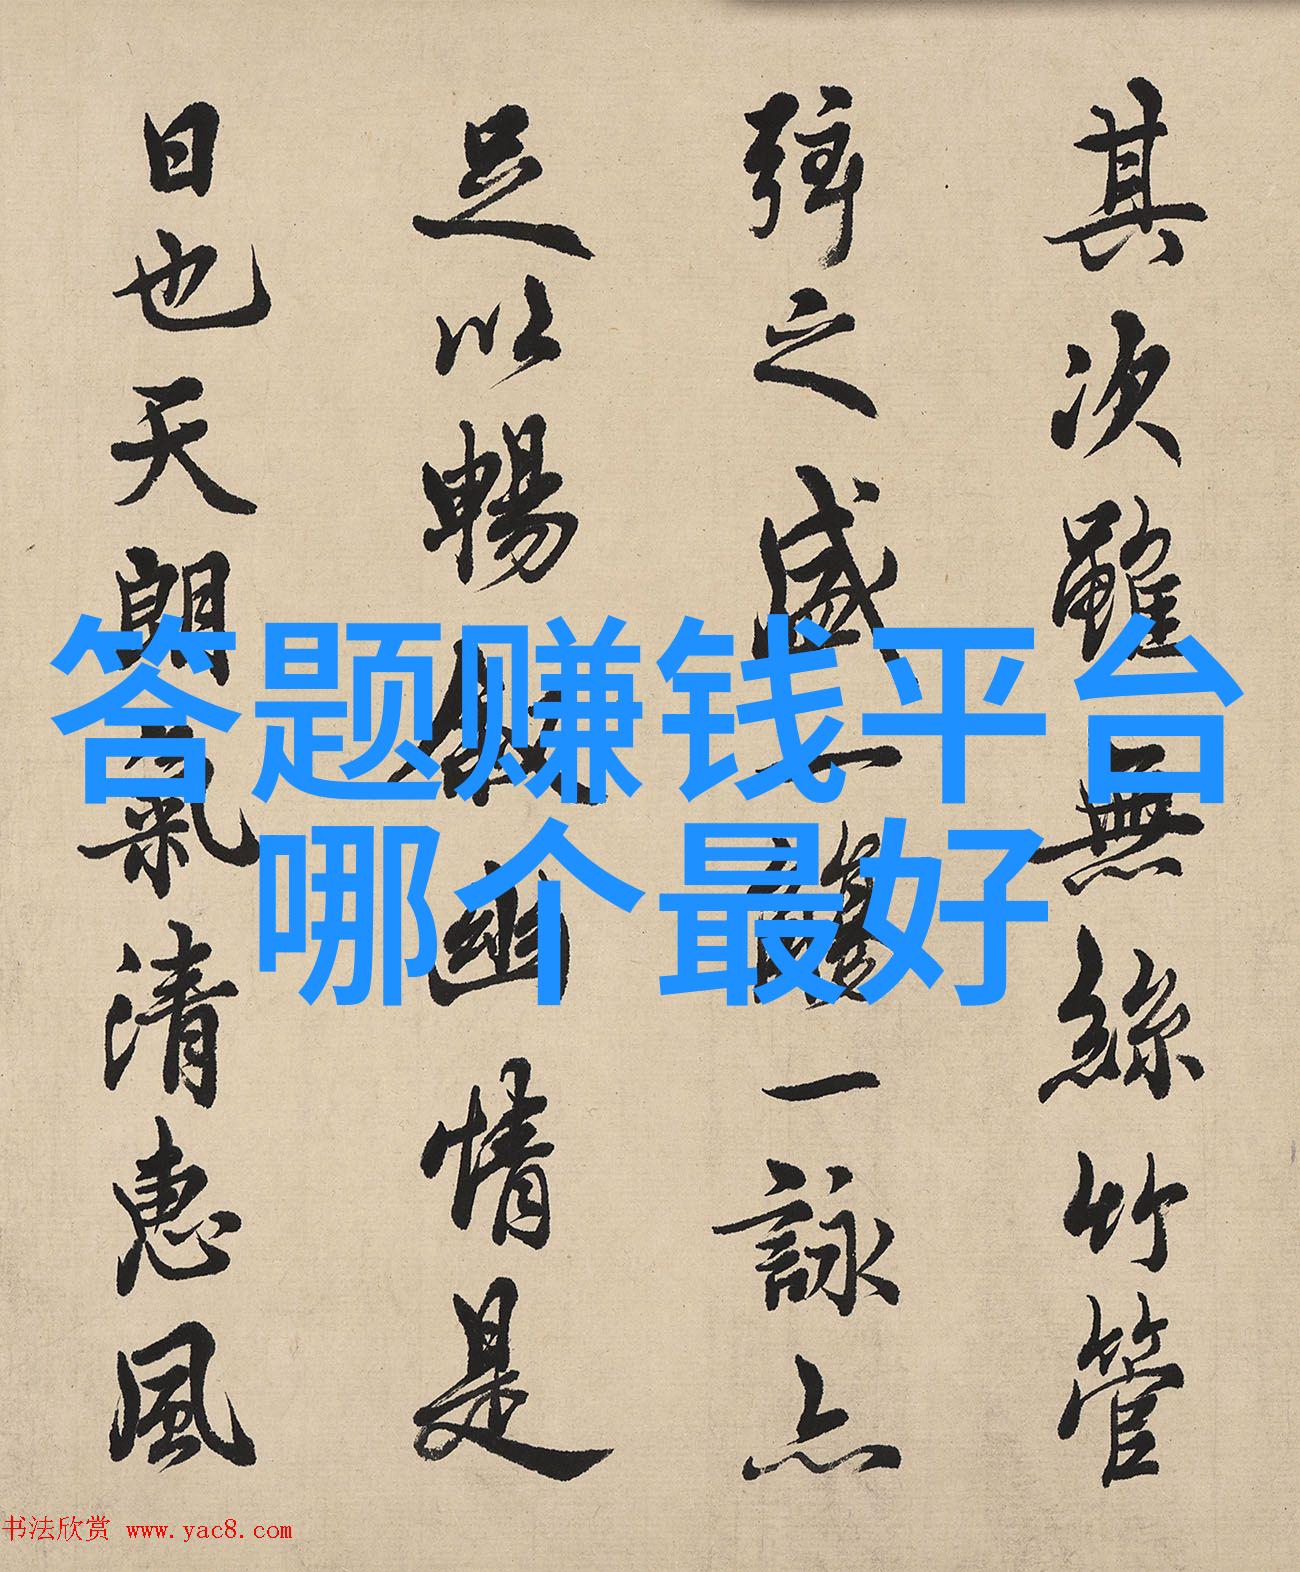 其次雖無絲竹管
弦之盛一觴一詠亦
足以暢敘幽情是
日也天朗氣清惠風
答题赚钱平台
哪个最好
书法欣赏 www.yac8.com